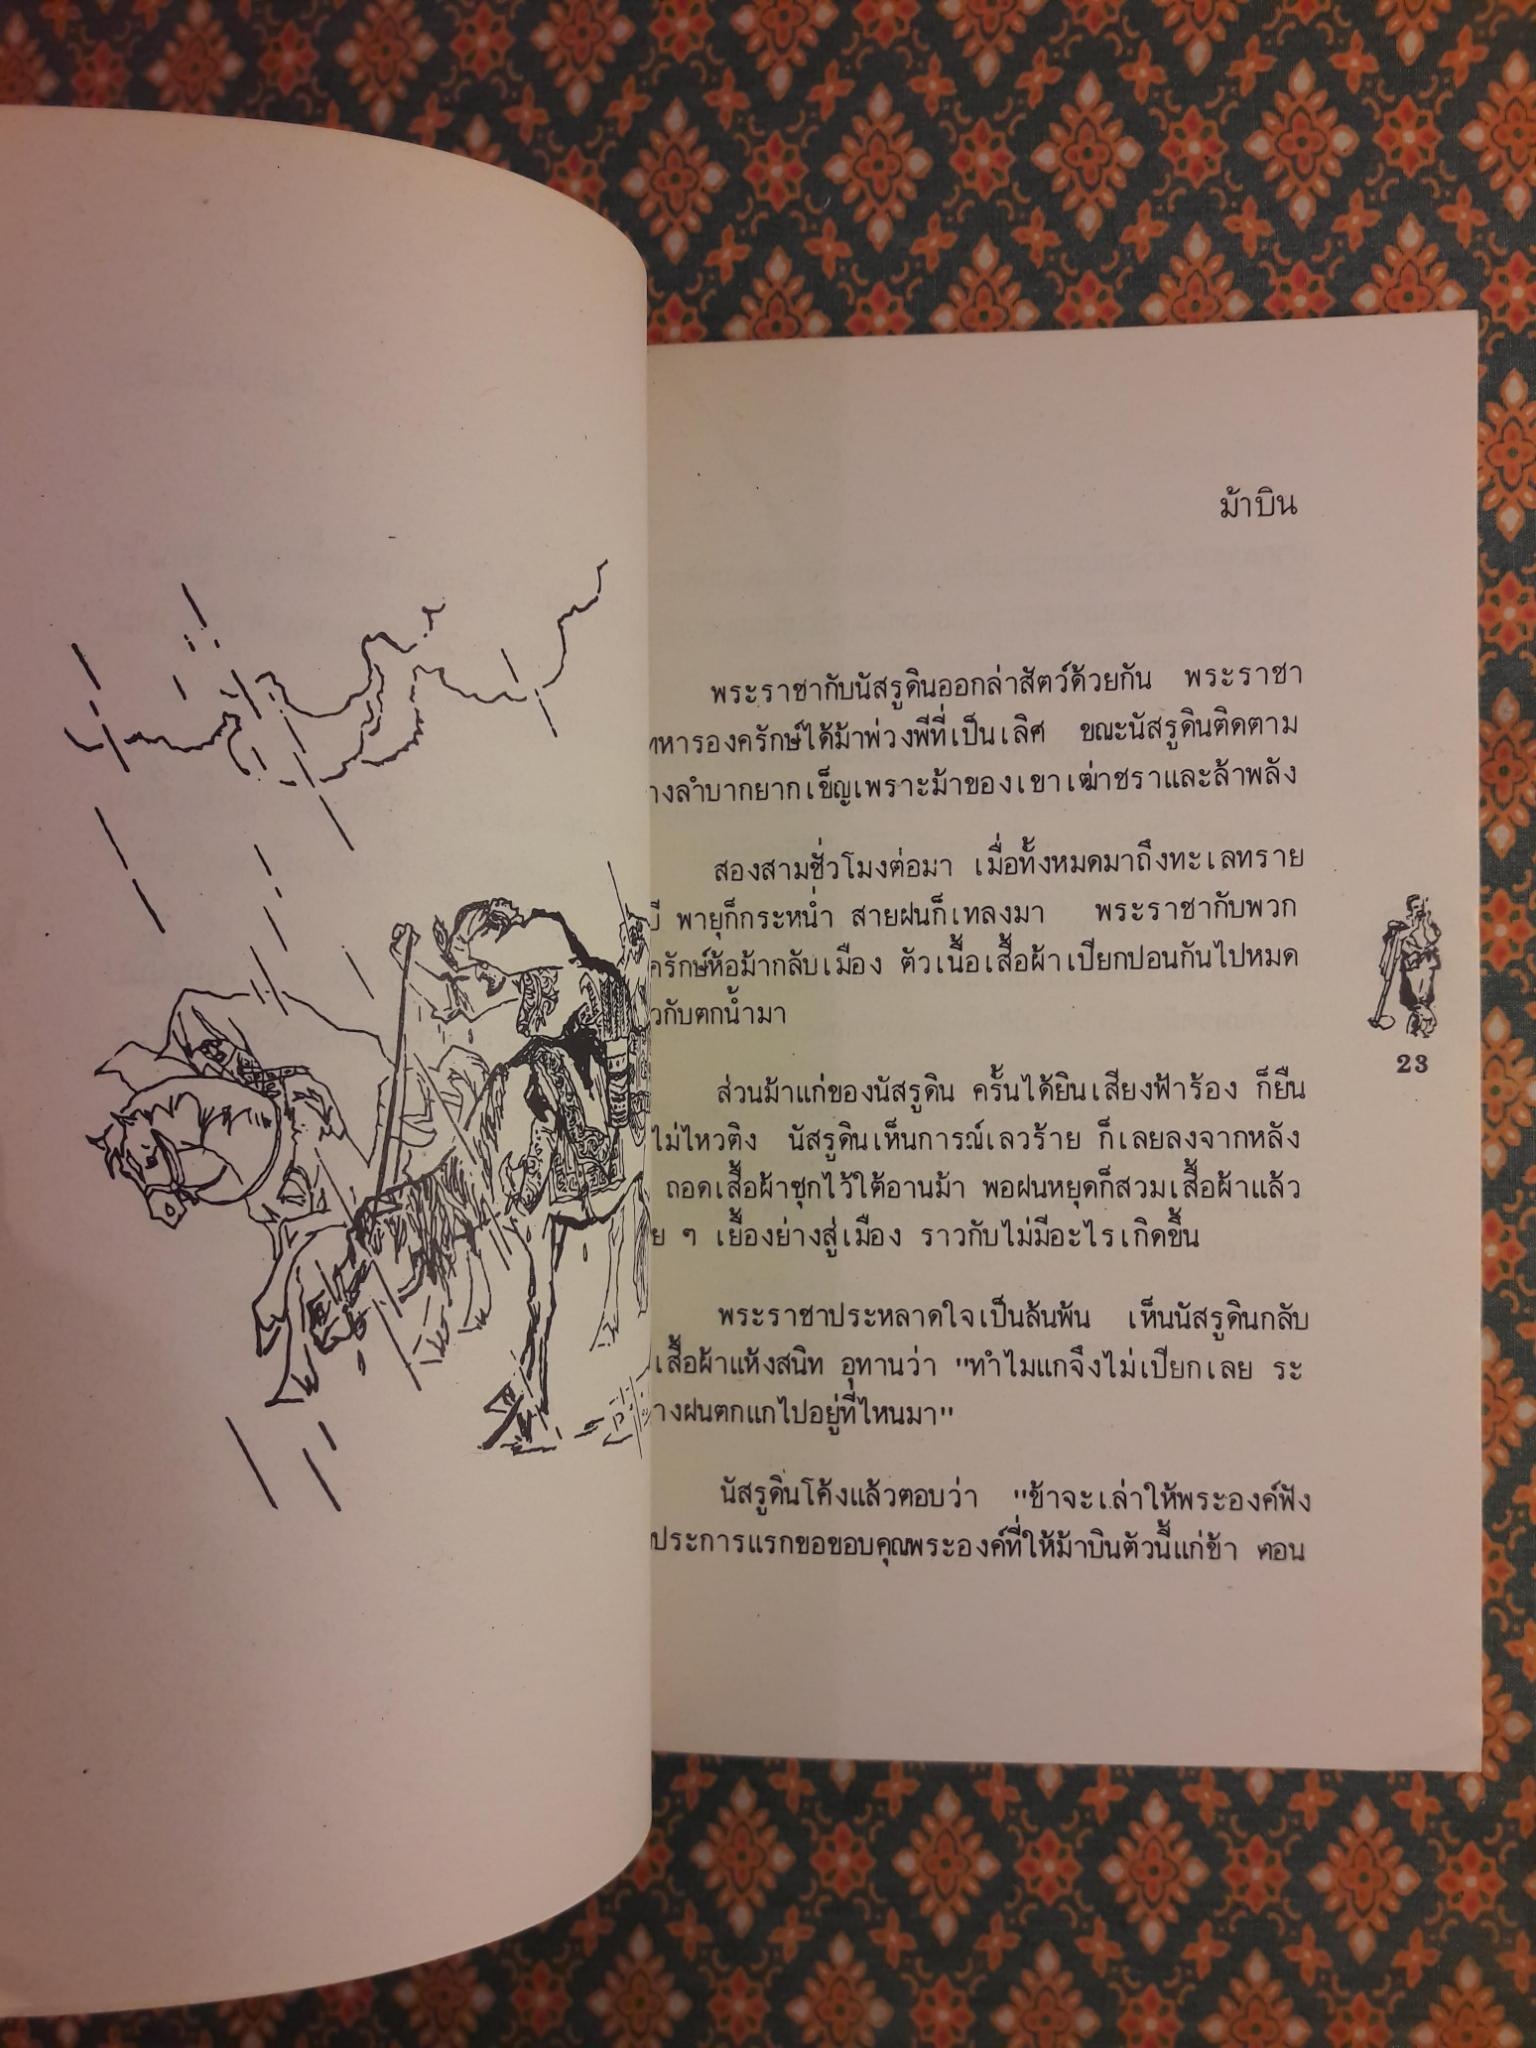 ม้าบิน
พระราชากับนัสรูดินออกล่าสัตว์ด้วยกัน พระราชา
ทหารองครักษ์ได้ม้าพ่วงพีที่เป็นเลิศ ขณะนัสรูดินติดตาม
างลำบากยากเข็ญเพราะม้าของเขาเฒ่าชราและล้าพลัง
สองสามชั่วโมงต่อมา เมื่อทั้งหมดมาถึงทะเลทราย
พายุก็กระหน่ำ สายฝนก็เทลงมา พระราชากับพวก
ครักษ์ห้อม้ากลับเมือง ตัวเนื้อเสื้อผ้าเปียกปอนกันไปหมด
วกับตกน้ำมา
23
ส่วนม้าแก่ของนัสรูดิน ครั้นได้ยินเสียงฟ้าร้อง ก็ยืน
ไม่ไหวติง นัสรูดินเห็นการณ์เลวร้าย ก็เลยลงจากหลัง
ถอดเสื้อผ้าซุกไว้ใต้อานม้า พอฝนหยุดก็สวมเสื้อผ้าแล้ว
ย ๆ เยื้องย่างสู่เมือง ราวกับไม่มีอะไรเกิดขึ้น
พระราชาประหลาดใจเป็นล้นพ้น เห็นนัสรูดินกลับ
เสื้อผ้าแห้งสนิท อุทานว่า "ทำไมแกจึงไม่เปียกเลย ระ
างฝนตกแกไปอยู่ที่ไหนมา"
นัสรูดินโค้งแล้วตอบว่า "ข้าจะเล่าให้พระองค์ฟัง
ประการแรกขอขอบคุณพระองค์ที่ให้ม้าบินตัวนี้แก่ข้า ตอน